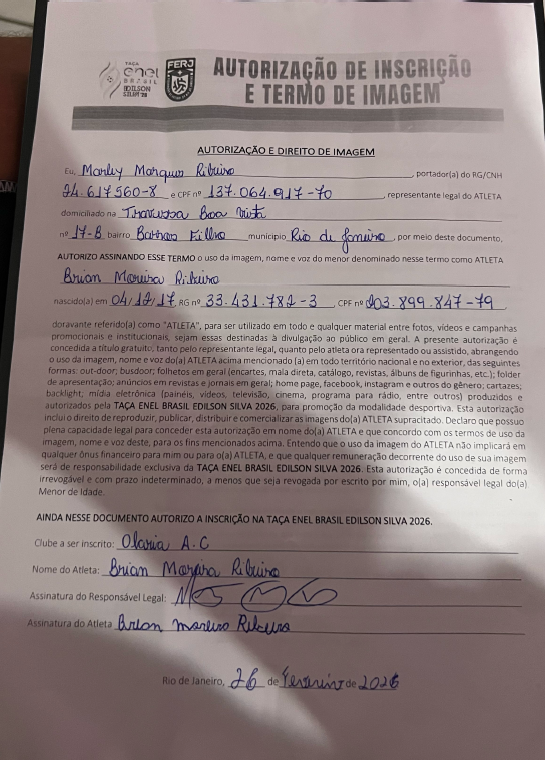 TAÇA
enel
BRASIL
EDILSON
SILVA '26
FERJ
AUTORIZAÇÃO DE INSCRIÇÃO
E TERMO DE IMAGEM
AUTORIZAÇÃO E DIREITO DE IMAGEM
Eu, Marley Marques Ribeiro, portador(a) do RG/CNH
24.617560-8 e CPF nº 137.064.917-70, representante legal do ATLETA
domiciliado na Travessa Boa Vista
nº 17-B bairro Barros Filho município Rio de Janeiro, por meio deste documento,
AUTORIZO ASSINANDO ESSE TERMO o uso da imagem, nome e voz do menor denominado nesse termo como ATLETA
Brian Moreira Ribeiro
nascido(a) em 04/12/17 RG nº 33.431.782-3 CPF nº 203.899.847-79
doravante referido(a) como "ATLETA", para ser utilizado em todo e qualquer material entre fotos, vídeos e campanhas
promocionais e institucionais, sejam essas destinadas à divulgação ao público em geral. A presente autorização é
concedida a título gratuito, tanto pelo representante legal, quanto pelo atleta ora representado ou assistido, abrangendo
o uso da imagem, nome e voz do(a) ATLETA acima mencionado (a) em todo território nacional e no exterior, das seguintes
formas: out-door; busdoor; folhetos em geral (encartes, mala direta, catálogo, revistas, álbuns de figurinhas, etc.); folder
de apresentação; anúncios em revistas e jornais em geral; home page, facebook, instagram e outros do gênero; cartazes;
backlight; mídia eletrônica (painéis, vídeos, televisão, cinema, programa para rádio, entre outros) produzidos e
autorizados pela TAÇA ENEL BRASIL EDILSON SILVA 2026, para promoção da modalidade desportiva. Esta autorização
inclui o direito de reproduzir, publicar, distribuir e comercializar as imagens do(a) ATLETA supracitado. Declaro que possuo
plena capacidade legal para conceder esta autorização em nome do(a) ATLETA e que concordo com os termos de uso da
imagem, nome e voz deste, para os fins mencionados acima. Entendo que o uso da imagem do ATLETA não implicará em
qualquer ônus financeiro para mim ou para o(a) ATLETA, e que qualquer remuneração decorrente do uso de sua imagem
será de responsabilidade exclusiva da TAÇA ENEL BRASIL EDILSON SILVA 2026. Esta autorização é concedida de forma
irrevogável e com prazo indeterminado, a menos que seja revogada por escrito por mim, o(a) responsável legal do(a)
Menor de Idade.
AINDA NESSE DOCUMENTO AUTORIZO A INSCRIÇÃO NA TAÇA ENEL BRASIL EDILSON SILVA 2026.
Clube a ser inscrito: Olaria A.C
Nome do Atleta: Brian Moreira Ribeiro
Assinatura do Responsável Legal:
Assinatura do Atleta Brian moreira Ribeiro
Rio de Janeiro, 26 de fevereiro de 2026